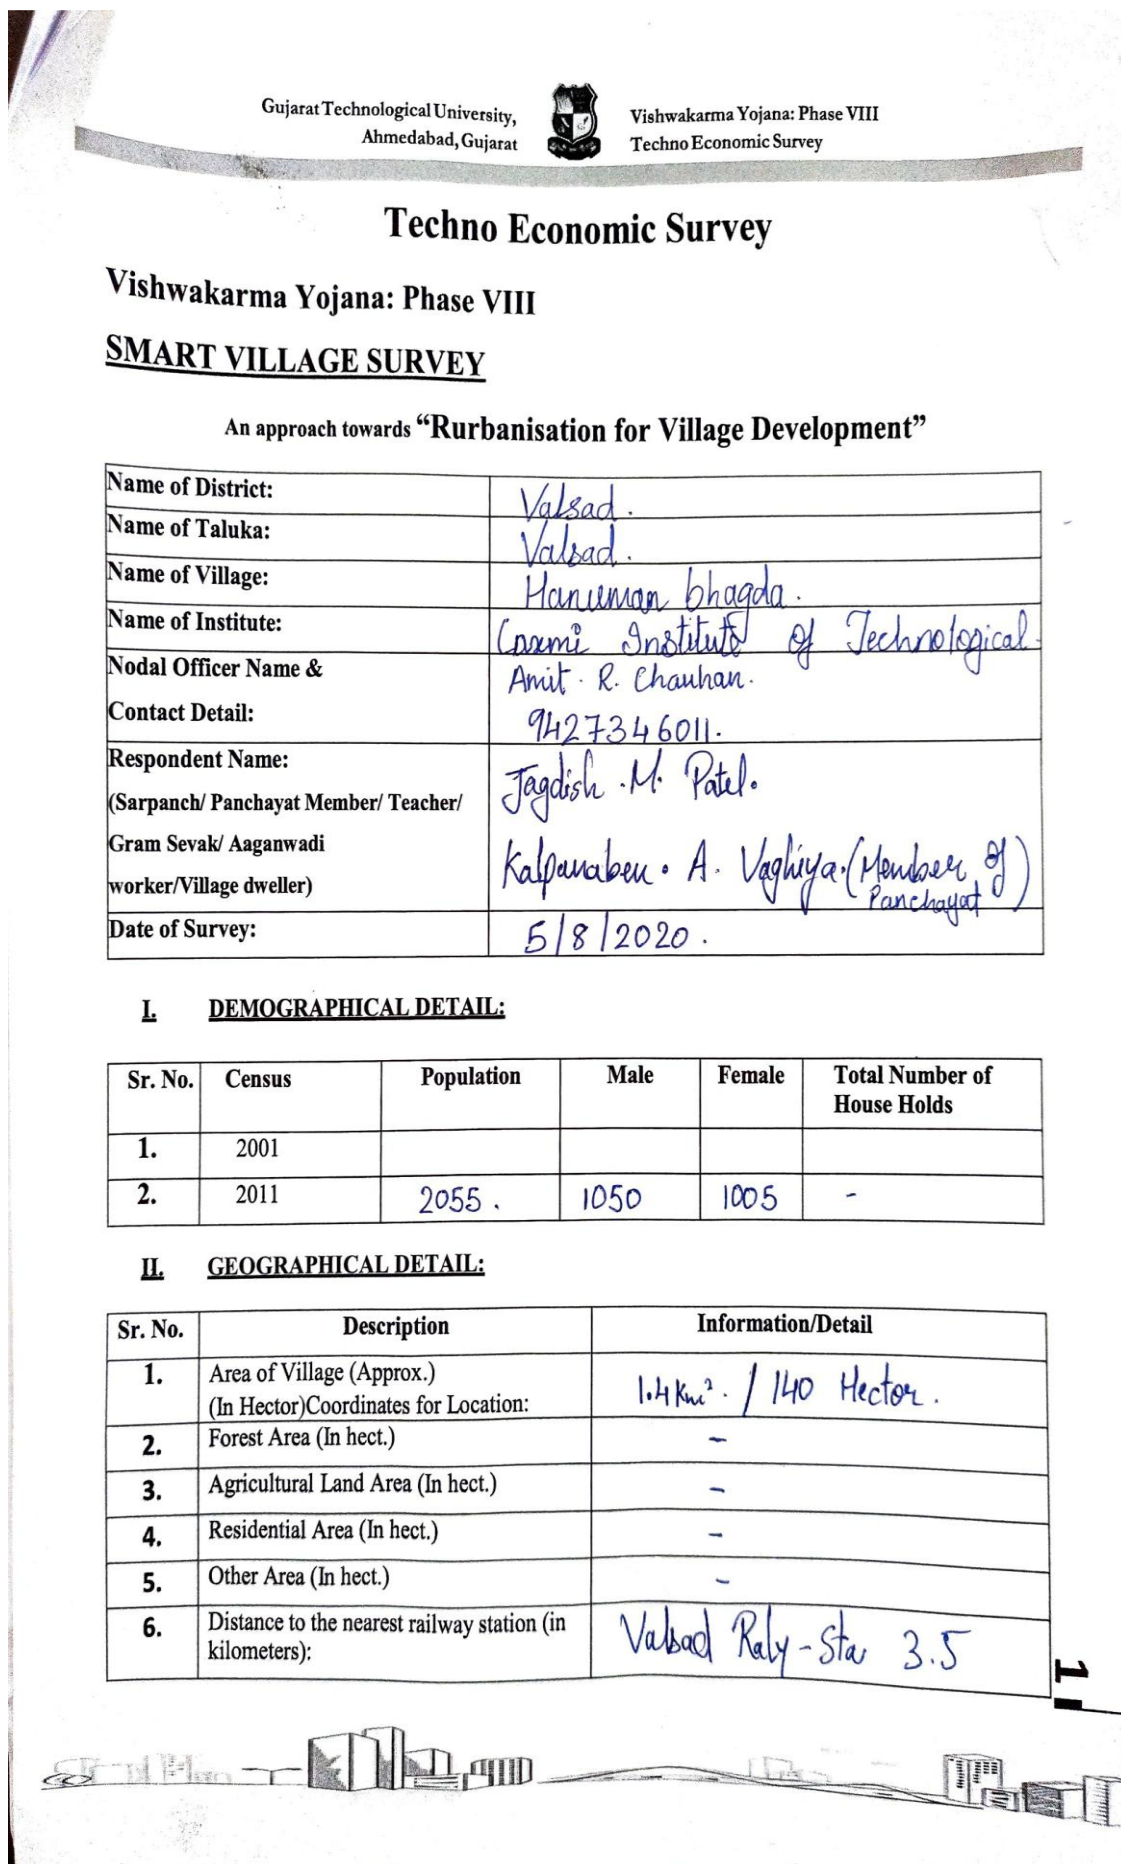 Gujarat Technological University,
Ahmedabad, Gujarat
Vishwakarma Yojana: Phase VIII
Techno Economic Survey
Techno Economic Survey
Vishwakarma Yojana: Phase VIII
SMART VILLAGE SURVEY
An approach towards “Rurbanisation for Village Development”
Name of District: Valsad.
Name of Taluka: Valsad.
Name of Village: Hanuman bhagda.
Name of Institute: Laxmi Institute of Technological.
Nodal Officer Name & Amit. R. Chauhan.
Contact Detail: 9427346011.
Respondent Name: Jagdish .M. Patel.
(Sarpanch/ Panchayat Member/ Teacher/
Gram Sevak/ Aaganwadi Kalpanaben. A. Vaghiya. (Member of
worker/Village dweller) Panchayat)
Date of Survey: 5/8/2020.
I. DEMOGRAPHICAL DETAIL:
Sr. No. Census Population Male Female Total Number of
House Holds
1. 2001
2. 2011 2055. 1050 1005 -
II. GEOGRAPHICAL DETAIL:
Sr. No. Description Information/Detail
1. Area of Village (Approx.) 1.4 Km². / 140 Hector.
(In Hector)Coordinates for Location:
2. Forest Area (In hect.) -
3. Agricultural Land Area (In hect.) -
4. Residential Area (In hect.) -
5. Other Area (In hect.) -
6. Distance to the nearest railway station (in Valsad Raly-Sta 3.5
kilometers):
1